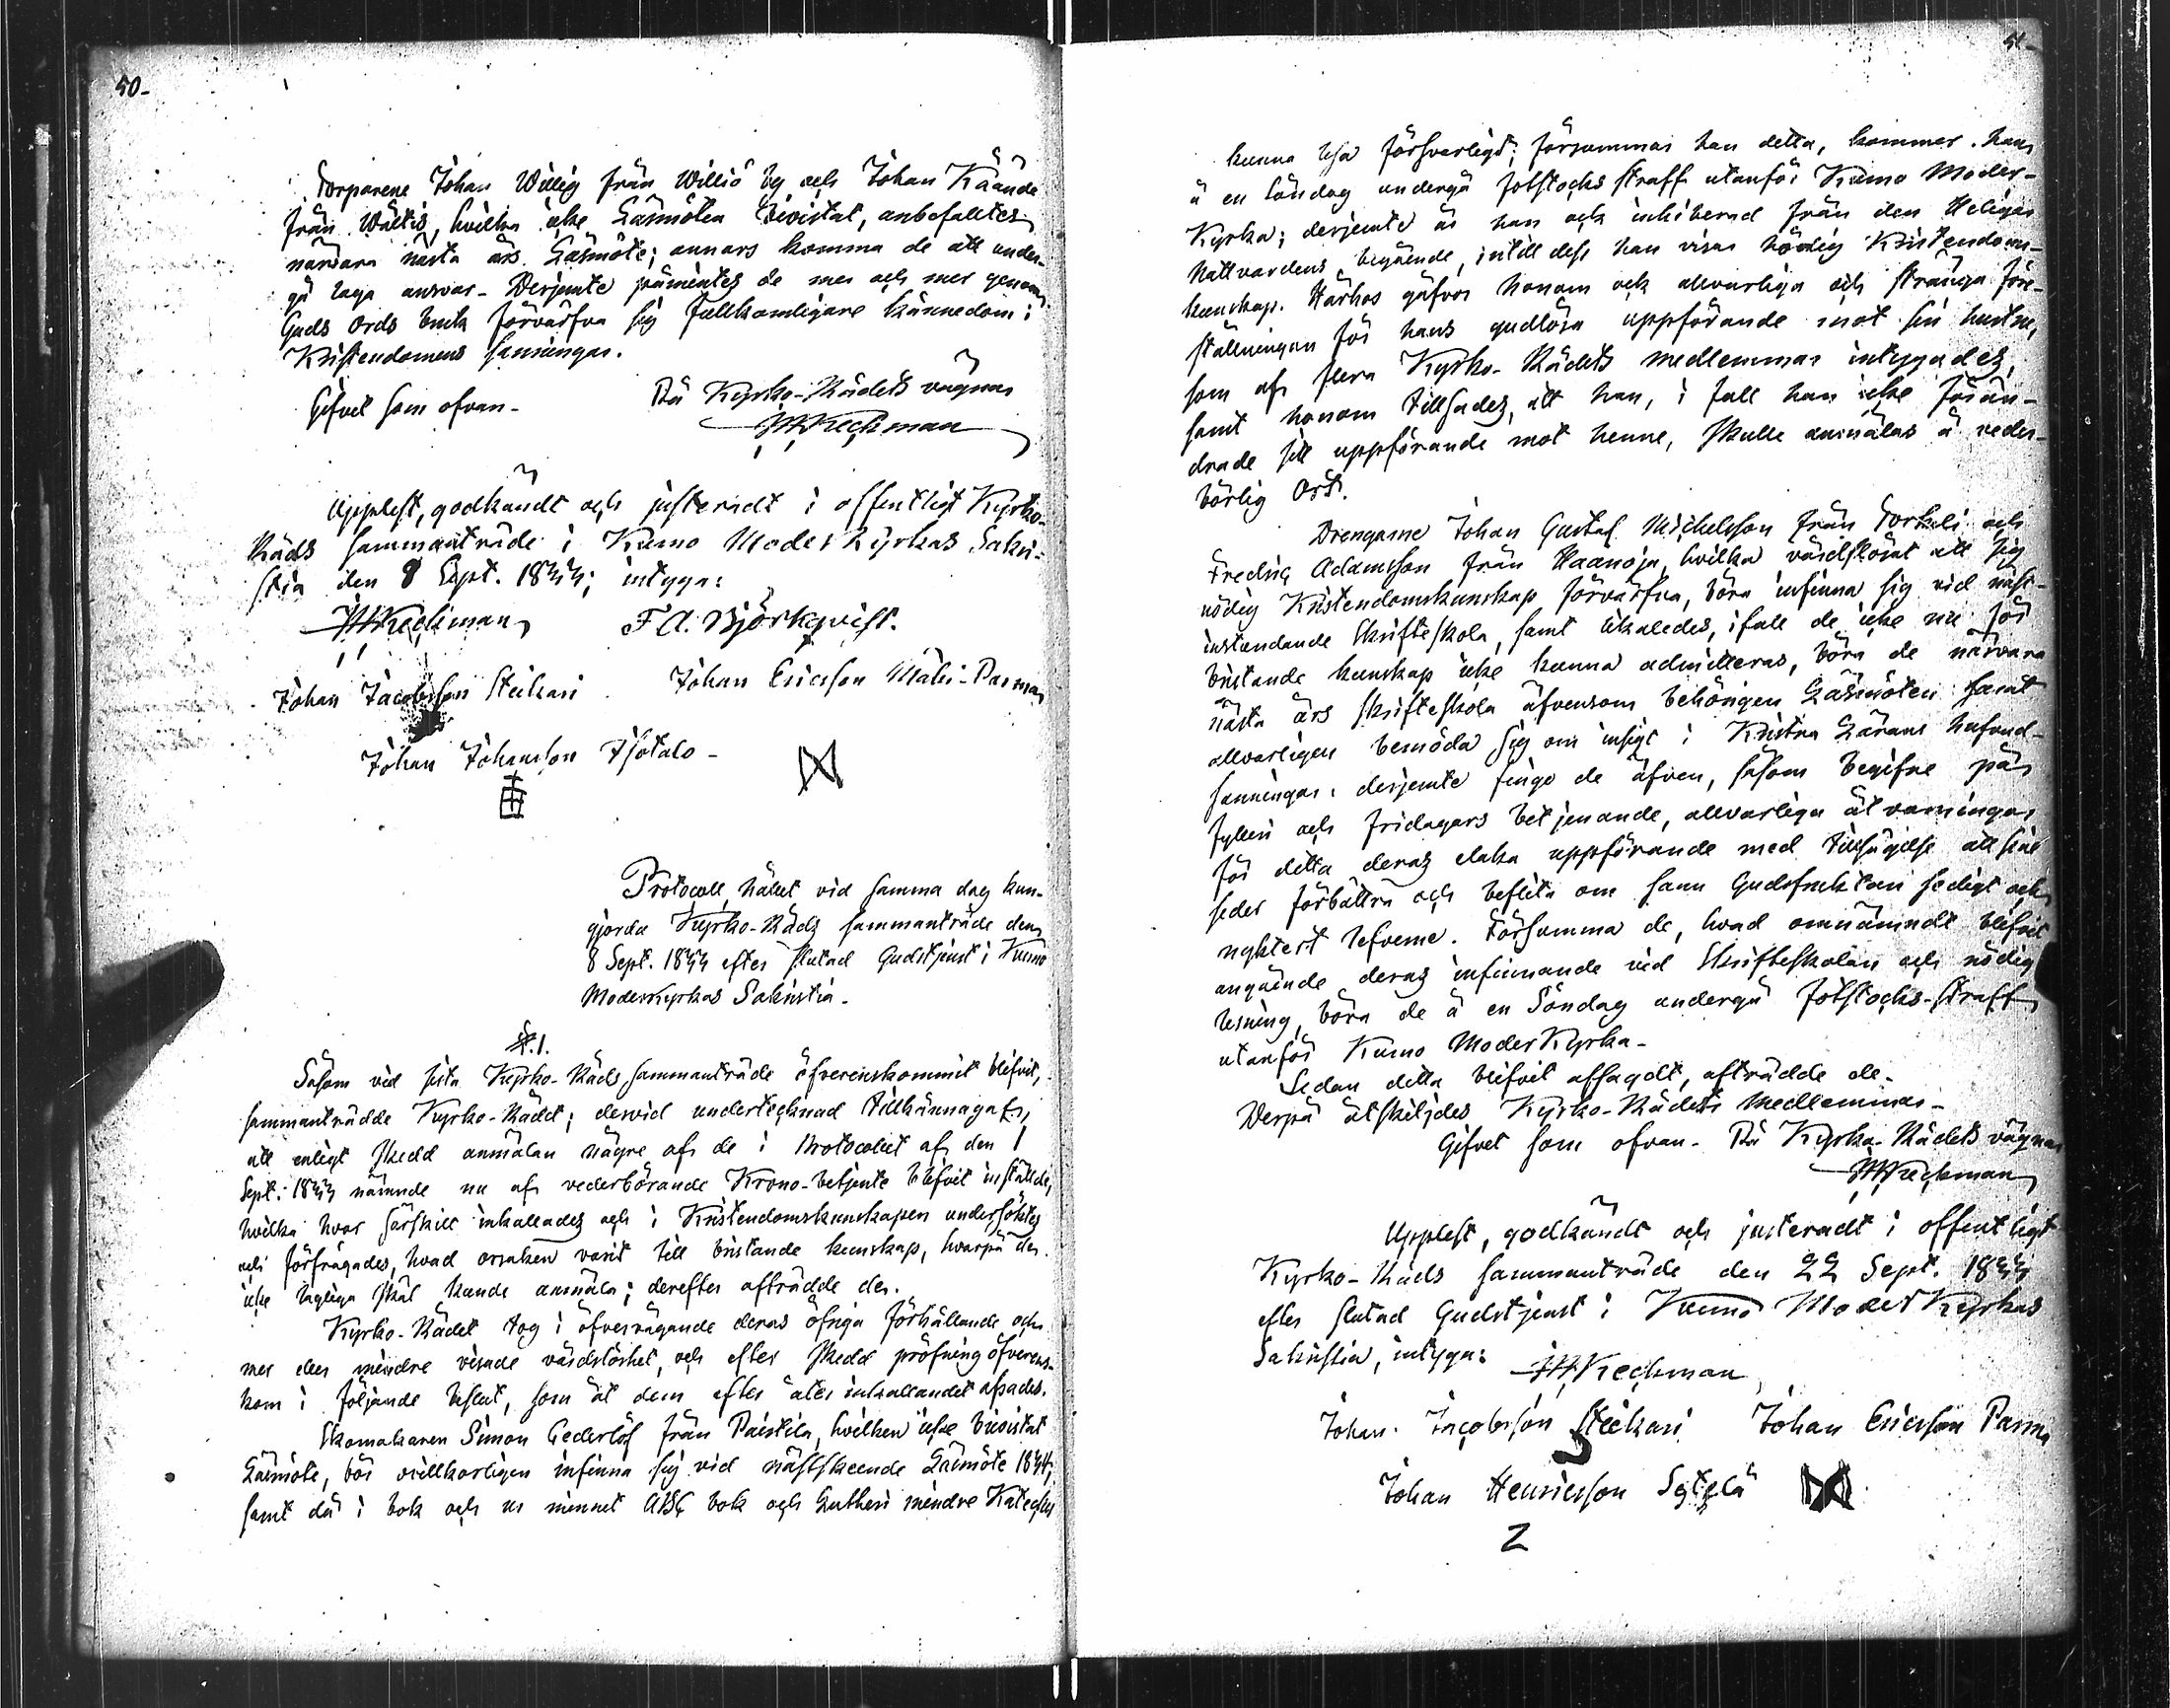 50-
Torparene Johan Willig från Williö by och Johan Käände
från Wältis, hvilka icke Läsmöten bivistat, anbefalltes
närvara nästa års Läsmöte; annars komma de att under-
gå laga ansvar. Derjemte påmintes de mer och mer genom
Guds Ords bruk förvärfva sig fullkomligare kännedom i
Kristendomens sanningar.
Gifvet som ofvan-
På Kyrko-Rådets vägnar
Kechman
Upplest, godkändt och justeradt i offentligt Kyrko-
Råds sammanträde i Kumo Moder Kyrkas Sakri-
stia den 8 Sept. 1844; intyga:
Kechman F. A. Björkqvist.
Johan Jacobsson Steikari Johan Ericsson Mäki-Parma
Johan Johansson Isotalo-
Protocoll, hållet vid samma dag kun-
gjorda Kyrko-Råds sammanträde den
8 Sept. 1844 efter slutad Gudstjenst i Kumo
Moderkyrkas Sakristia-
§.1.
Såsom vid sista Kyrko-Råds sammanträde öfverenskommit blifvit,
sammanträdde Kyrko-Rådet; dervid undertecknad tillkännagaf,
att enligt skedd anmälan någre af de i Protocollet af den 1
Sept. 1844 nämnde nu af vederbörande Krono-betjente blifvit inställde,
hvilka hvar särskilt inkallades och i Kristendomskunskapen undersöktes
och förfrågades, hvad orsaken varit till bristande kunskap, hvarpå de
icke lagliga skäl kunde anmäla; derefter afträdde de.
Kyrko-Rådet tog i öfvervägande deras öfriga förhållande och
mer eller mindre visade vårdslöshet, och efter skedd pröfning öfverens-
kom i följande beslut, som åt dem efter åter inkallandet afsades.
Skomakaren Simon Cederlöf från Paistila, hvilken icke bivistat
Läsmöte, bör ovillkorligen infinna sig vid nästskeende Läsmöte 1844,
samt då i bok och ur minnet ABC bok och Lutheri mindre Kateches
51-
kunna läsa försvarligt; försummar han detta, kommer han
å en Söndag undergå fotstocks straff utanför Kumo Moder-
Kyrka; derjemte är han ock inhiberad från den Heliga
Nattvardens begående, intill dess han visar nödig Kristendoms-
kunskap. Härhos gåfvos honom ock alvarliga och stränga före-
ställningar för hans gudlösa uppförande mot sin hustru,
som af flera Kyrko-Rådets medlemmar intygades,
samt honom tillsades, att han, i fall han icke förän-
drade sitt uppförande mot henne, skulle anmälas å veder-
börlig Ort.
Drengarne Johan Gustaf Michelsson från Torkeli och
Fredric Adamsson från Haanoja, hvilka vårdslösat att sig
nödig Kristendomskunskap förvärfva, böra infinna sig vid näst-
instundande Skrifteskola, samt likaledes, ifall de icke nu för
bristande kunskap icke kunna admitteras, böra de närvara
nästa års skrifteskola äfvensom behörigen Läsmöten samt
allvarligen bemöda sig om insigt i Kristna Lärans hufvud-
sanningar. derjemte finge de äfven, såsom begifne på
fylleri och fridagars betjenande, allvarliga åtvarningar
för detta deras elaka uppförande med tillsägelse att sine
seder förbättra och beflita om sann Gudsfruktan sedigt och
nyktert lefverne. Försumma de, hvad omnämndt blifvit
angående deras infinnande vid Skrifteskolan och nödig
läsning, böra de å en Söndag undergå fotstocks-straff
utanför Kumo ModerKyrka-
Sedan detta blifvit afsagdt, afträdde de-
Derpå åtskiljdes Kyrko-Rådets Medlemmar-
Gifvet som ofvan- På Kyrko-Rådets vägnar
Kechman
Upplest, godkändt och justeradt i offentligt
Kyrko-Råds sammanträde den 22 Sept. 1844
efter slutad Gudstjenst i Kumo Moder Kyrkas
Sakristia, intyga:
Kechman
Johan Jacobsson Steikari Johan Ericsson Parma
Johan Henricsson Sytelä